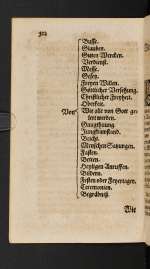 302
Busse.
Glauben.
Guten Wercken.
Verdienst.
Messe.
Gesetz.
Freyen Willen.
Göttlicher Versehung.
Christlicher Freyheit.
Oberkeit.
Von Wie alle von Gott ge
lert werden.
Gnugthuung.
Jungfrawstand.
Beicht.
Menschen Satzungen.
Fasten.
Betten.
Heyligen Anruffen.
Bildern.
Festen oder Feyertagen.
Ceremonien.
Begräbniß.
Wie